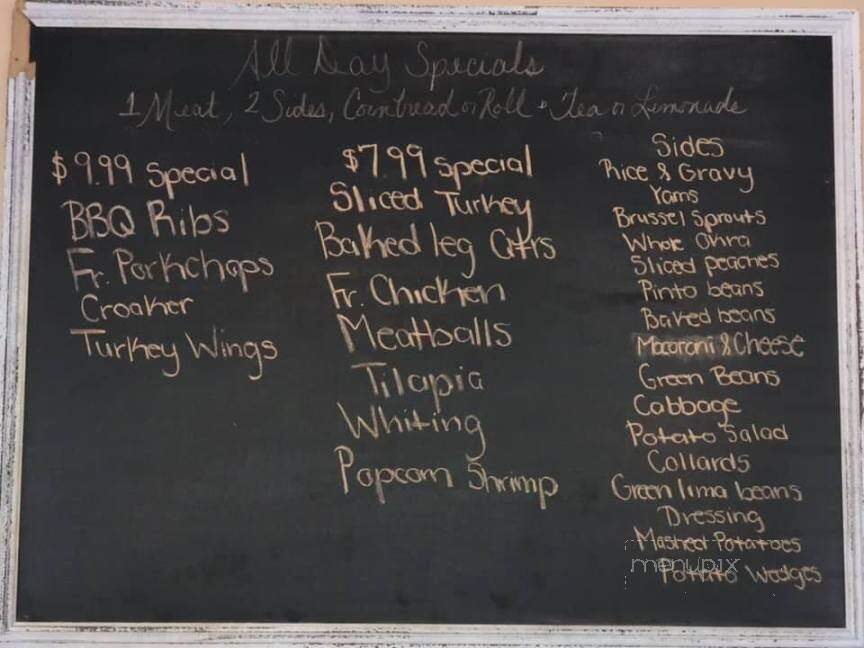 All Day Specials
1 Meat, 2 Sides, Cornbread or Roll & Tea or Limonade
$9.99 Special
BBQ Ribs
Fr. Porkchops
Croaker
Turkey Wings
$7.99 Special
Sliced Turkey
Baked leg Qtrs
Fr. Chicken
Meatballs
Tilapia
Whiting
Popcorn Shrimp
Sides
Rice & Gravy
Yams
Brussel Sprouts
Whole Okra
Sliced peaches
Pinto beans
Baked beans
Macaroni & Cheese
Green Beans
Cabbage
Potato Salad
Collards
Green lima beans
Dressing
Mashed Potatoes
menupix
Potato Wedges